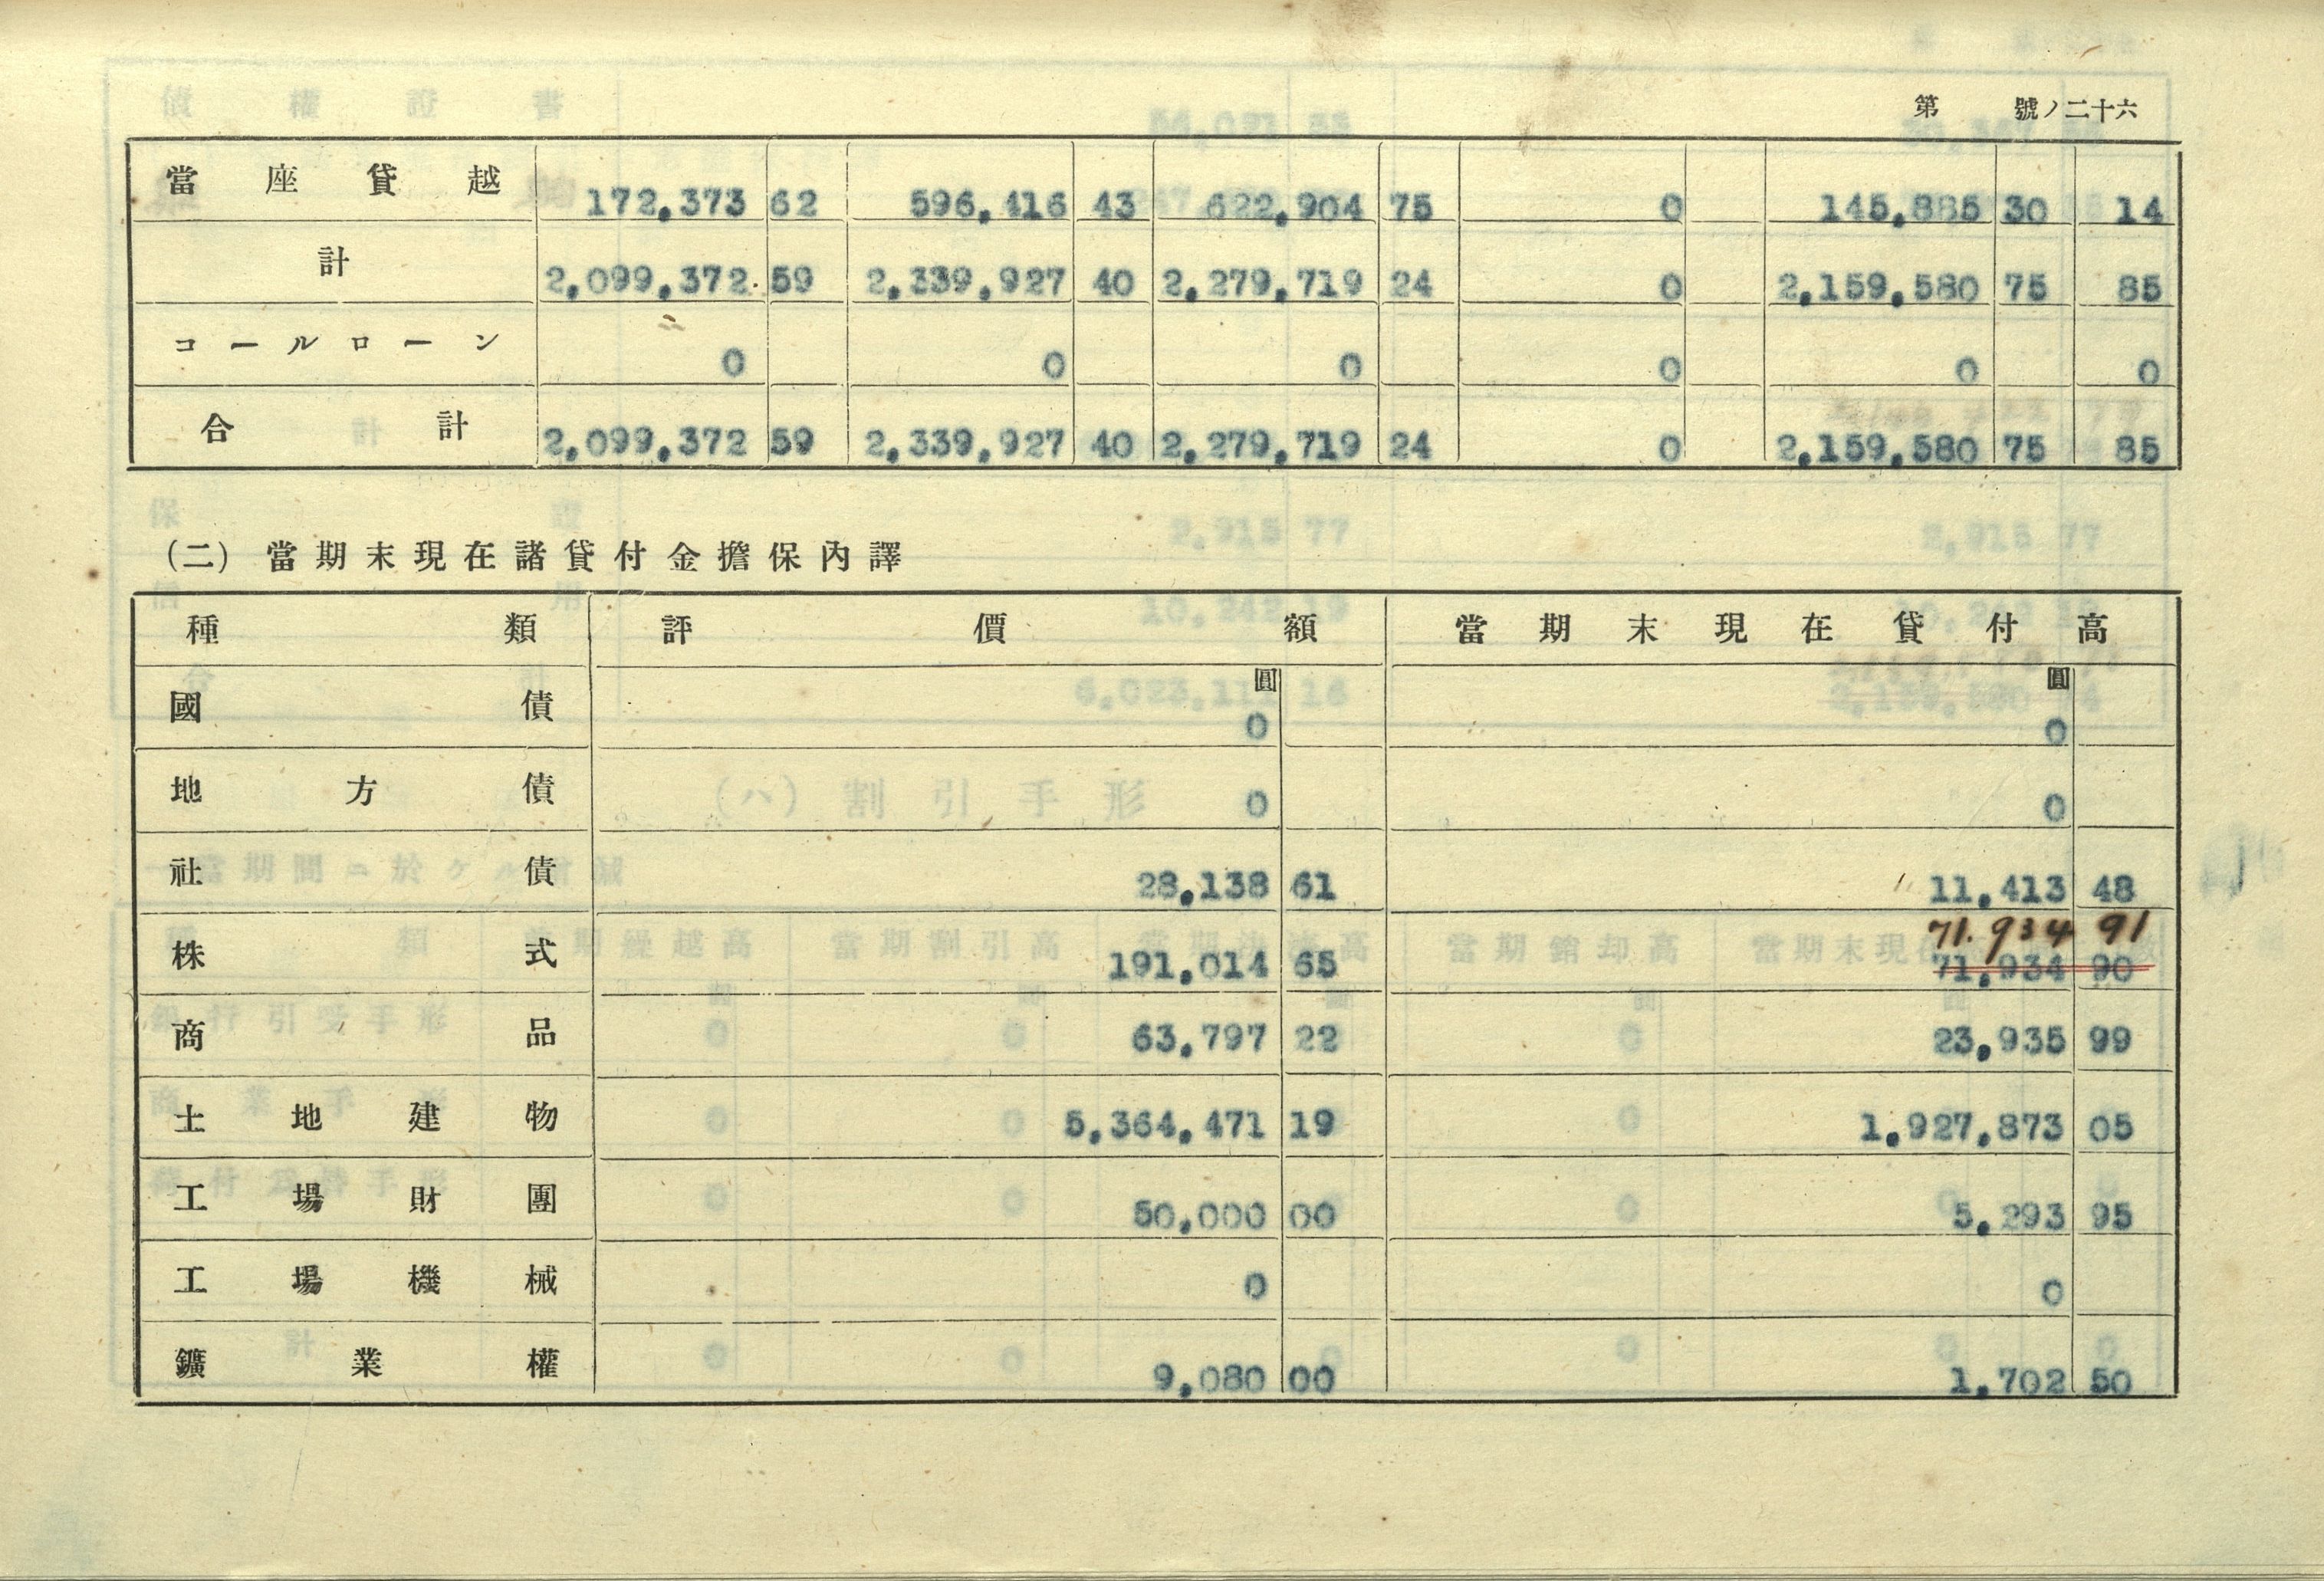 第 號ノ二十六
當座貸越 172,373 62 596,416 43 622,904 75 0 145,885 30 14
計 2,099,372.59 2,339,927 40 2,279,719 24 0 2,159,580 75 85
コールローン 0 0 0 0 0 0
合計 2,099,372 59 2,339,927 40 2,279,719 24 0 2,159,580 75 85
(二) 當期末現在諸貸付金擔保內譯
種類 評價額 當期末現在貸付高
國債 圓 0 圓 0
地方債 0 0
社債 28,138 61 11,413 48
71.934 91
株式 191,014 65 71,934 90
商品 63,797 22 23,935 99
土地建物 5,364,471 19 1,927,873 05
工場財團 50,000 00 5,293 95
工場機械 0 0
鑛業權 9,080 00 1,702 50